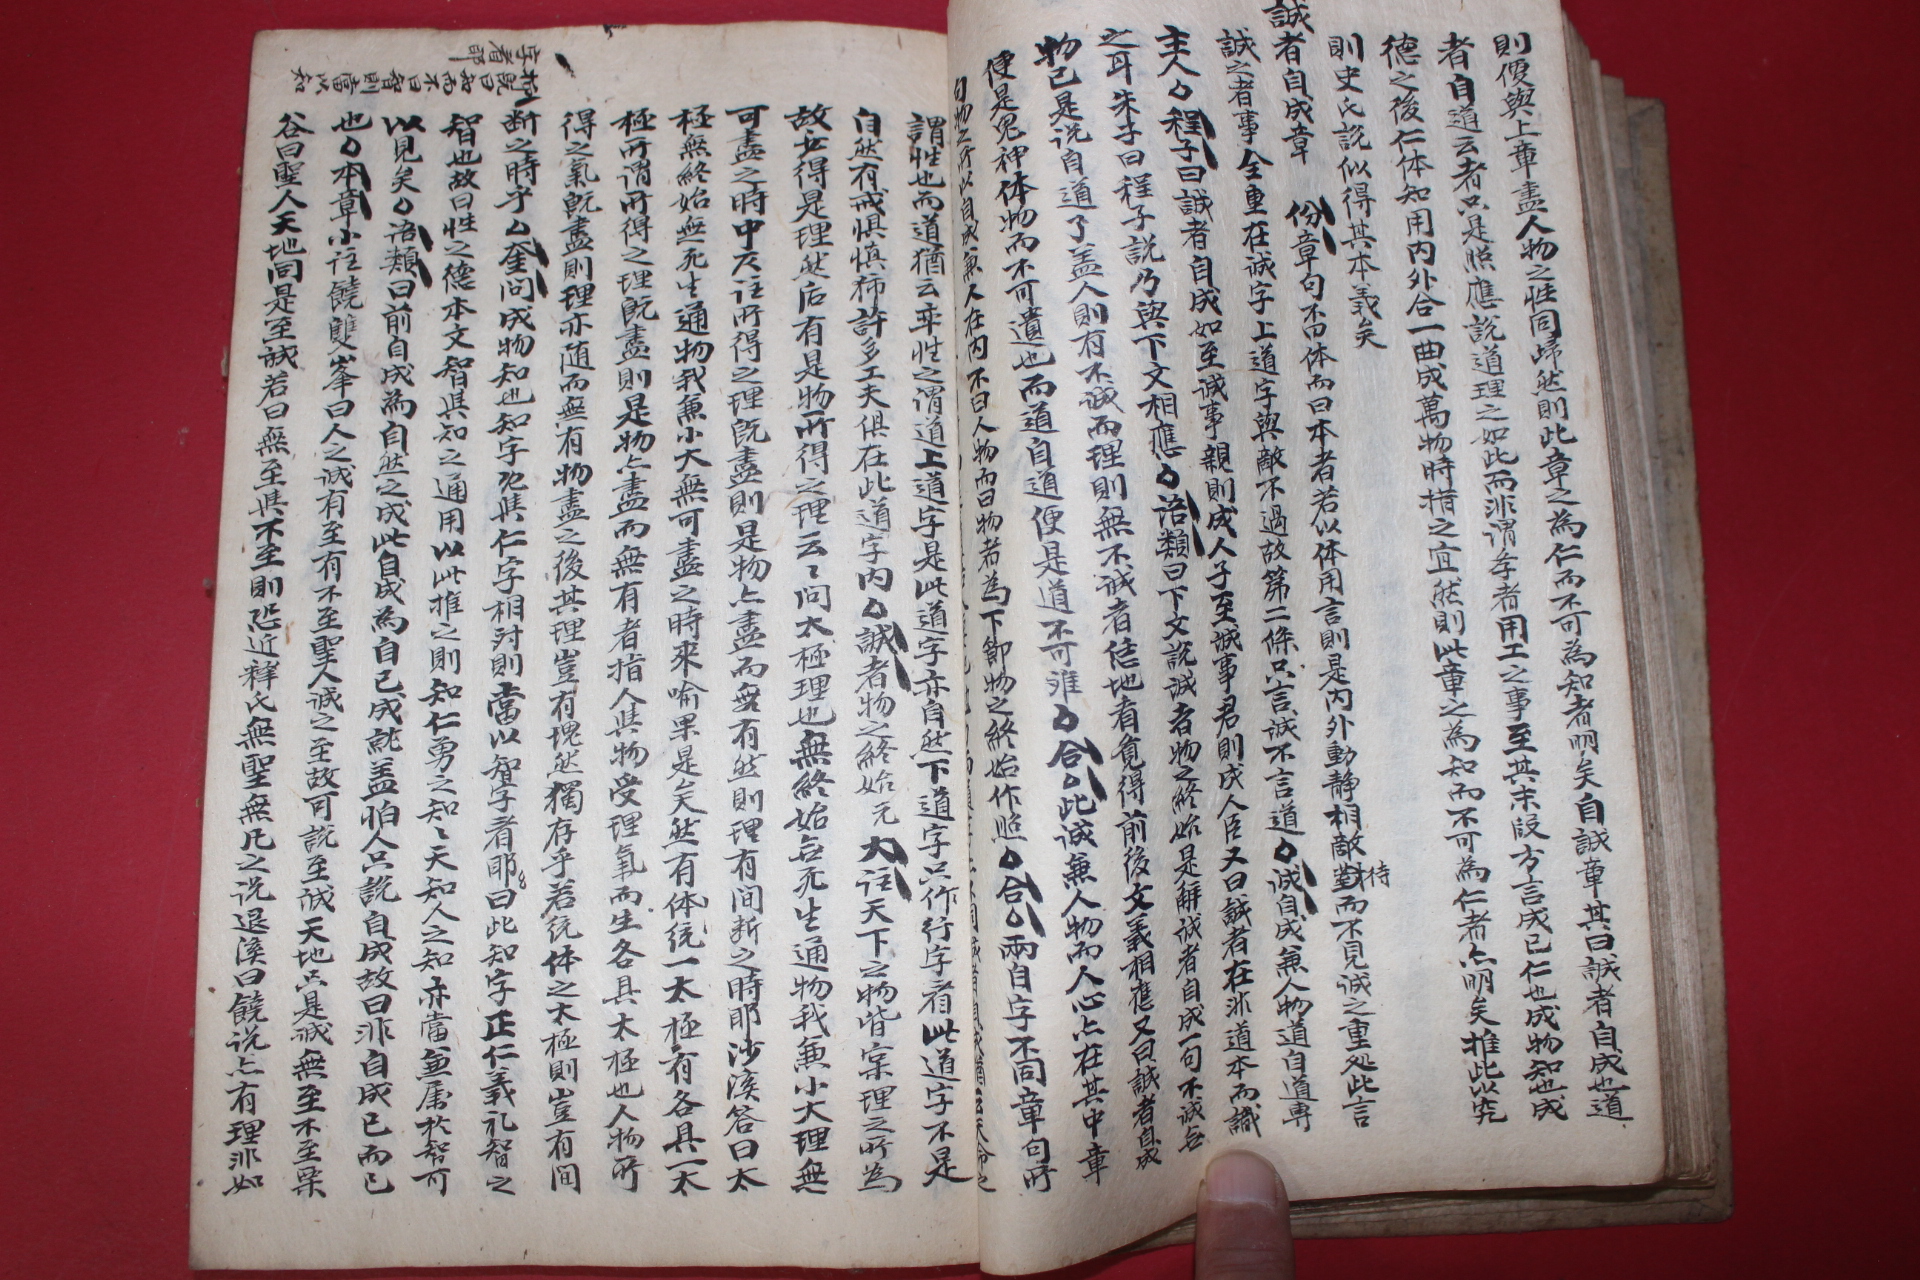 則便與上章盡人物之性同歸然則此章之為仁而不可為知者明矣自誠章其曰誠者自成也道
者自道云者只是照應說道理之如此而非謂學者用工之事至其末段方言成己仁也成物知也成
德之後仁体知用內外合一曲成萬物時措之宜然則此章之為知而不可為仁者亦明矣推此以究
則史氏說似得其本義矣
誠者自成章 份章句不曰体而曰本者若以体用言則是內外動静相敵對待而不見誠之重処此言
誠之者事全重在誠字上道字與敵不過故第二條只言誠不言道 誠自成兼人物道自道專
主人 程子曰誠者自成如至誠事親則成人子至誠事君則成人臣又曰誠者在非道本而誠
之耳朱子曰程子說乃與下文相應 語類曰下文說誠者物之終始是解誠者自成一句不誠無
物已是說自道了盖人則有不誠而理則無不誠者恁地看覓得前後文義相應又曰誠者自成
便是鬼神体物而不可遺也而道自道便是道不可離 合 此誠兼人物而人心亦在其中章
句物之所以自成兼人在內不曰人物而曰物者為下節物之終始作照 合 兩自字不同章句所
謂性也而道猶云率性之謂道上道字是此道字亦自然下道字只作行字看此道字不是
自然有戒惧慎獨許多工夫俱在此道字內 誠者物之終始 元 大註天下之物皆実理之所為
故必得是理然后有是物所得之理云〻問太極理也無終始無死生通物我兼小大理無
可盡之時中庸註所得之理既盡則是物亦盡而無有然則理有間断之時耶沙溪答曰太
極無終始無死生通物我兼小大無可盡之時來喻果是矣然有体統一太極有各具一太
極所謂所得之理既盡則是物亦盡而無有者指人與物受理氣而生各具太極也人物所
得之氣既盡則理亦随而無有物盡之後其理豈有塊然獨存乎若統体之太極則豈有間
断之時乎 奎問成物知也知字既與仁字相対則當以智字看耶曰此知字正仁義礼智之
智也故曰性之德本文智與知之通用以此推之則知仁勇之知〻天知人之知亦當並屬於智可
以見矣 語類曰前自成為自然之成此自成為自己成就盖怕人只說自成故曰非自成己而已
也 本章小註饒雙峯曰人之誠有至有不至聖人誠之至故可說至誠天地只是誠無至不至栗
谷曰聖人天地同是至誠若曰無至與不至則恐近釋氏無聖無凡之说退溪曰饒说亦有理非如